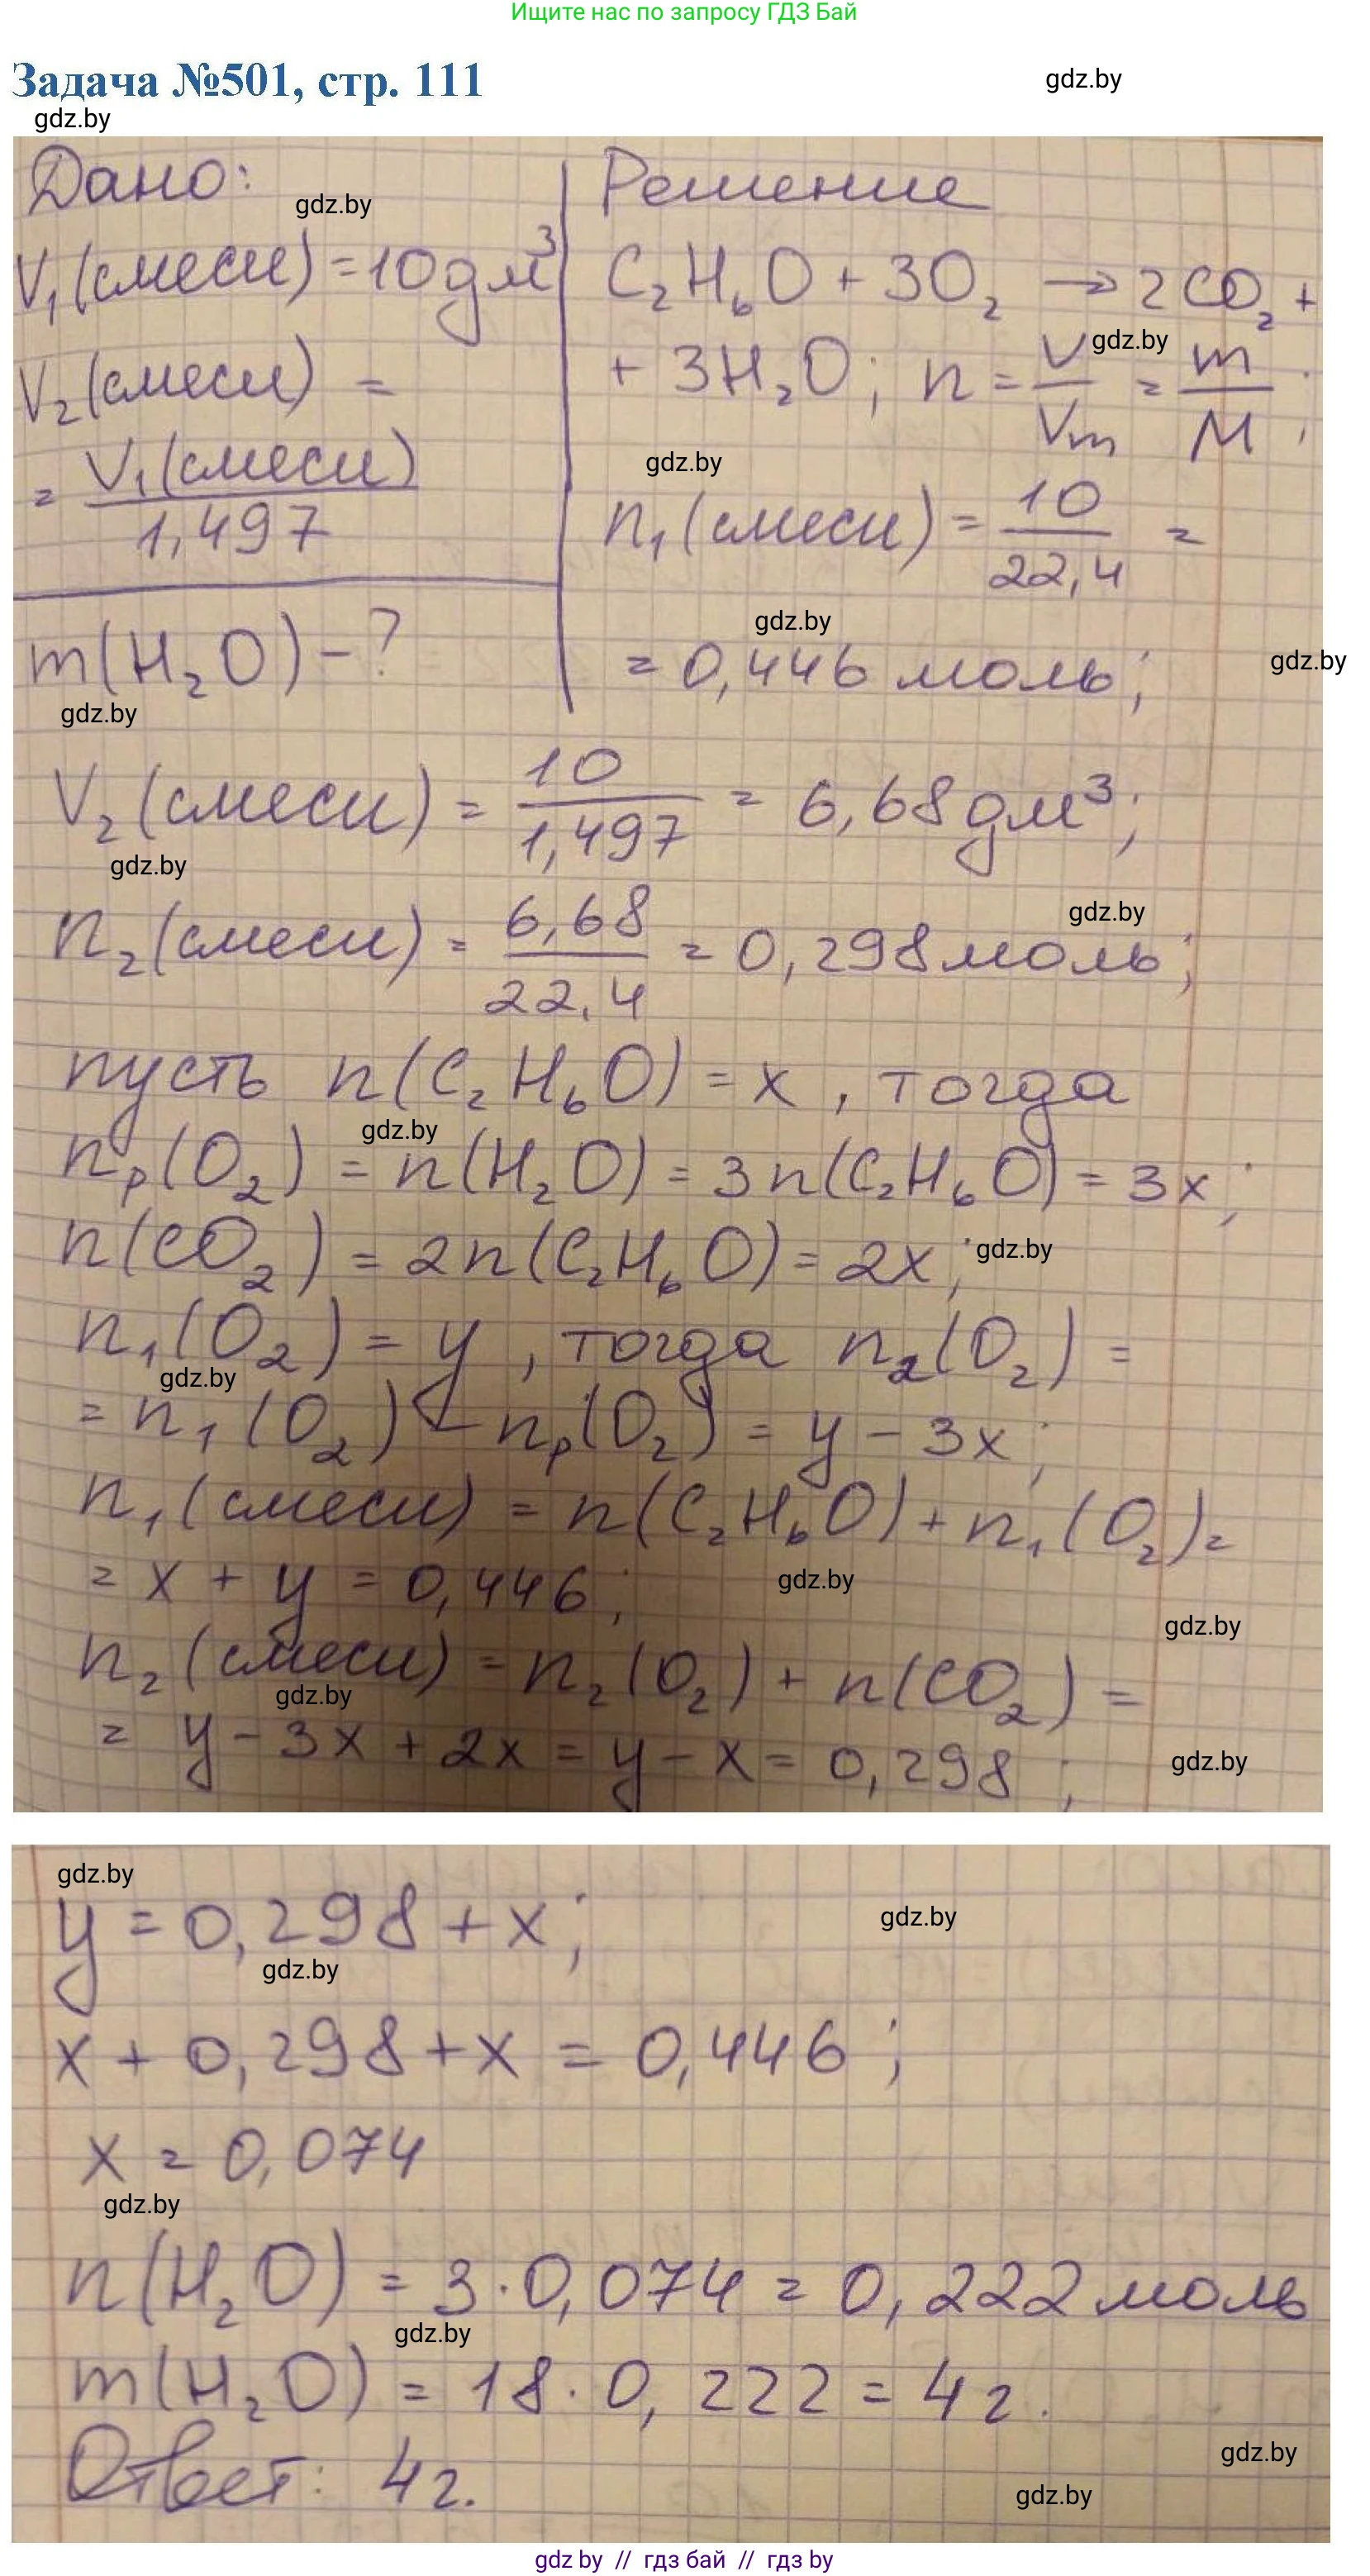 Ищите нас по запросу ГДЗ Бай
Задача №501, стр. 111
gdz.by
gdz.by
Дано:
gdz.by
V₁(смеси) = 10 дм³
V₂(смеси) =
= V₁(смеси) / 1,497
m(H₂O) - ?
gdz.by
Решение
C₂H₆O + 3O₂ → 2CO₂ +
gdz.by
+ 3H₂O; n = V/Vm = m/M;
gdz.by
n₁(смеси) = 10/22,4 =
gdz.by
= 0,446 моль;
gdz.by
V₂(смеси) = 10/1,497 = 6,68 дм³;
gdz.by
gdz.by
n₂(смеси) = 6,68/22,4 = 0,298 моль;
пусть n(C₂H₆O) = x, тогда
gdz.by
nₚ(O₂) = n(H₂O) = 3n(C₂H₆O) = 3x;
n(CO₂) = 2n(C₂H₆O) = 2x;
gdz.by
n₁(O₂) = y, тогда n₂(O₂) =
gdz.by
= n₁(O₂) - nₚ(O₂) = y - 3x;
n₁(смеси) = n(C₂H₆O) + n₁(O₂) =
= x + y = 0,446;
gdz.by
gdz.by
n₂(смеси) = n₂(O₂) + n(CO₂) =
gdz.by
= y - 3x + 2x = y - x = 0,298;
gdz.by
gdz.by
y = 0,298 + x;
gdz.by
gdz.by
x + 0,298 + x = 0,446;
x = 0,074
gdz.by
n(H₂O) = 3·0,074 = 0,222 моль
gdz.by
m(H₂O) = 18·0,222 = 4 г.
gdz.by
Ответ: 4 г.
gdz.by
gdz by // гдз бай // гдз by